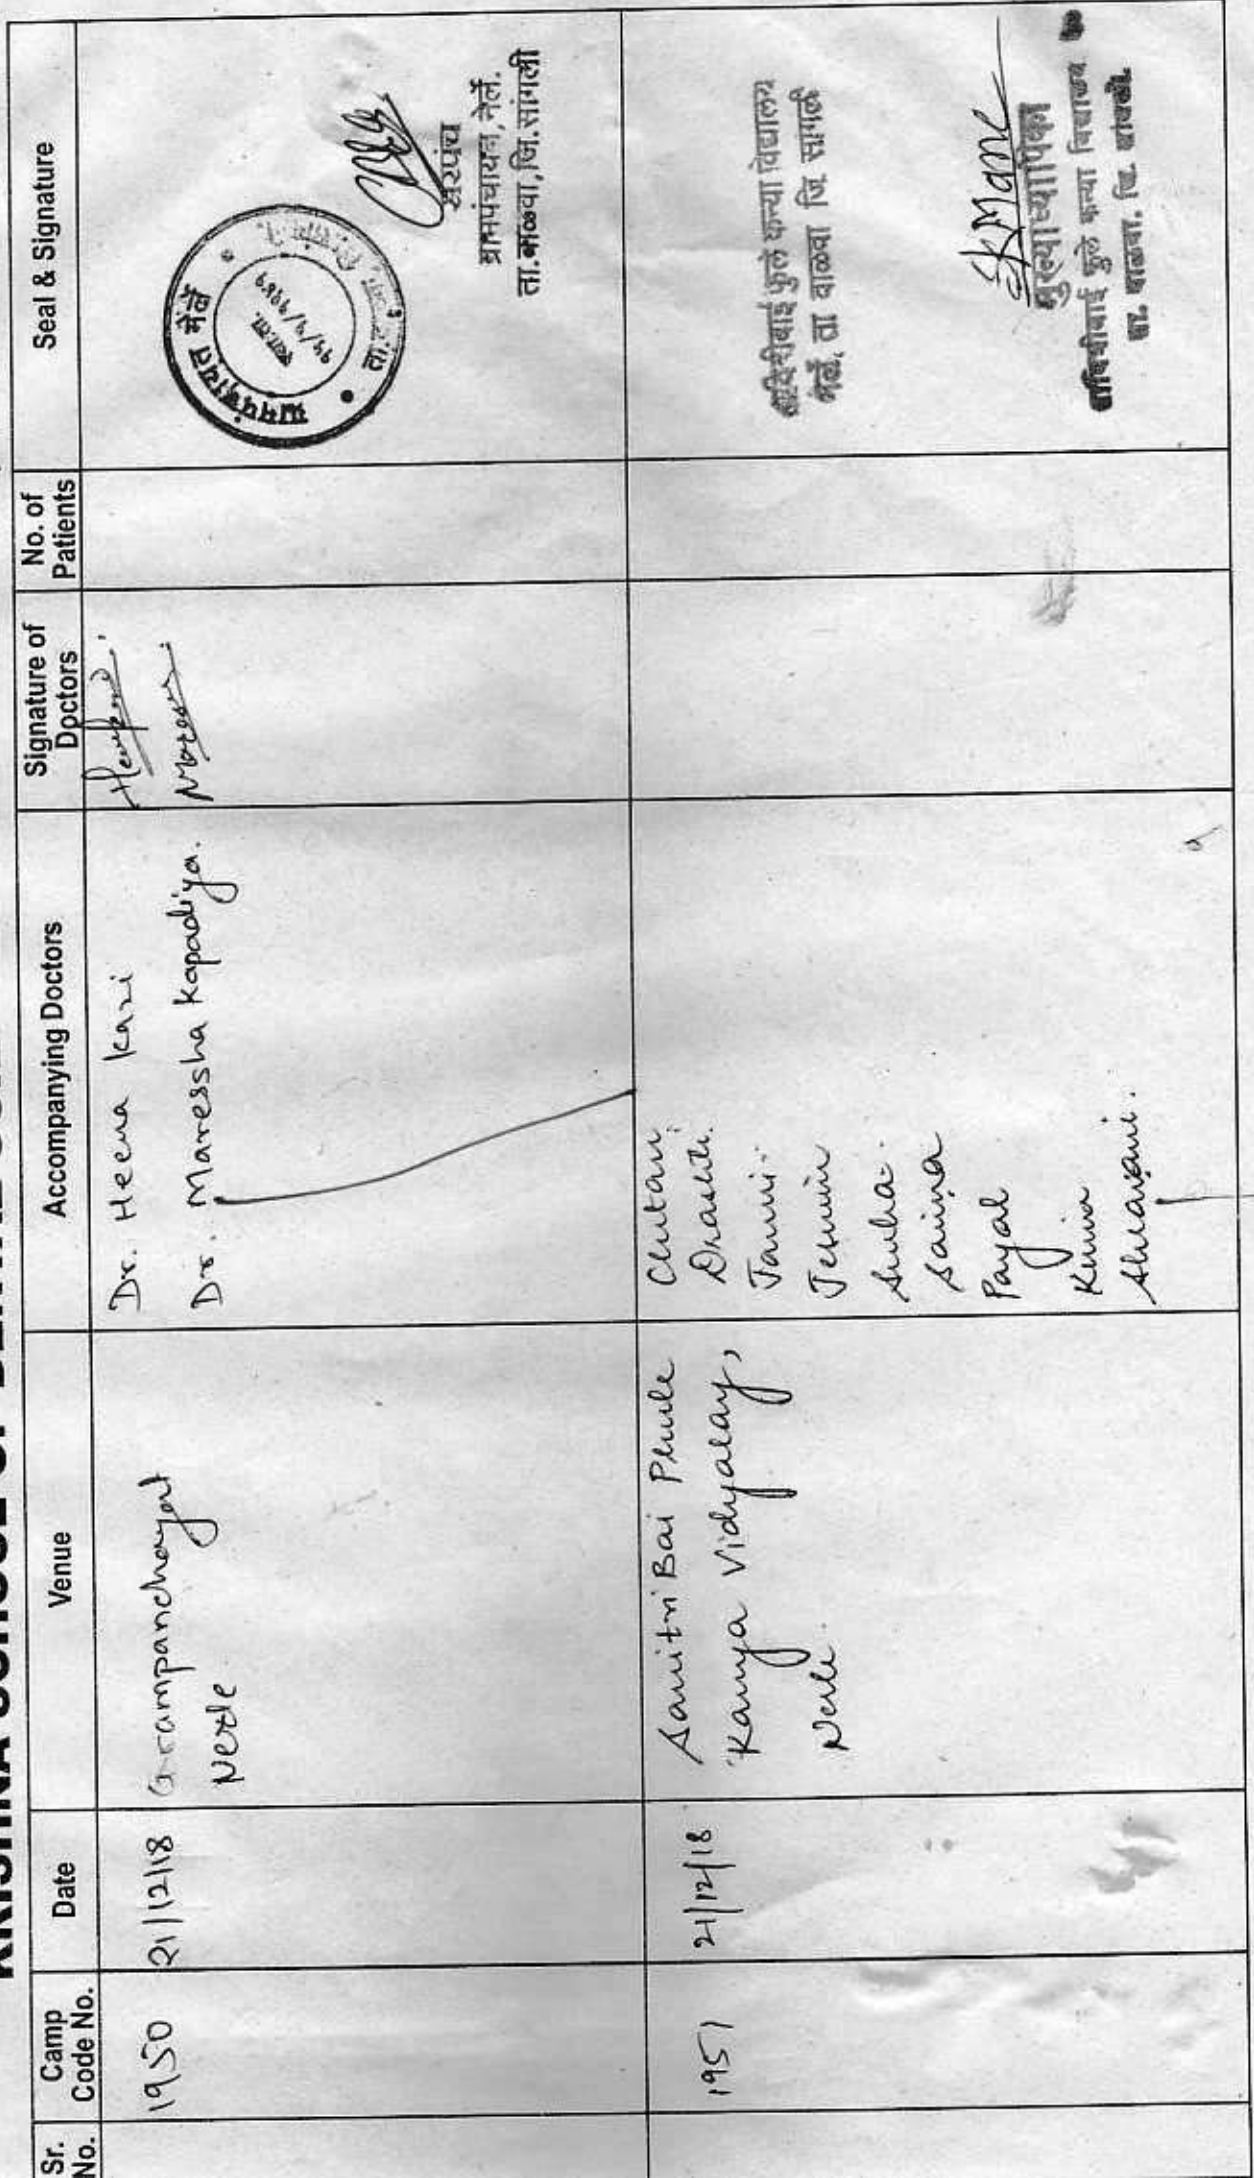 Sr. No.
Camp Code No.
Date
Venue
Accompanying Doctors
Signature of Doctors
No. of Patients
Seal & Signature
1950
21/12/18
Grampanchayat
Nerle
Dr. Heena Kazi
Dr. Maressha Kapadiya.
ग्रामपंचायत नेर्ले
सरपंच
ग्रामपंचायत, नेर्ले.
ता.वाळवा, जि.सांगली
1951
21/12/18
Savitri Bai Phule
Kanya Vidyalay,
Nerle.
Chetan
Drashti.
Janvi.
Jesmin
Sneha.
Saima
Payal
Shravani.
सावित्रीबाई फुले कन्या विद्यालय
नेर्ले, ता वाळवा जि सांगली
SKMane
मुख्याध्यापिका
सावित्रीबाई फुले कन्या विद्यालय
ता. वाळवा. जि. सांगली.